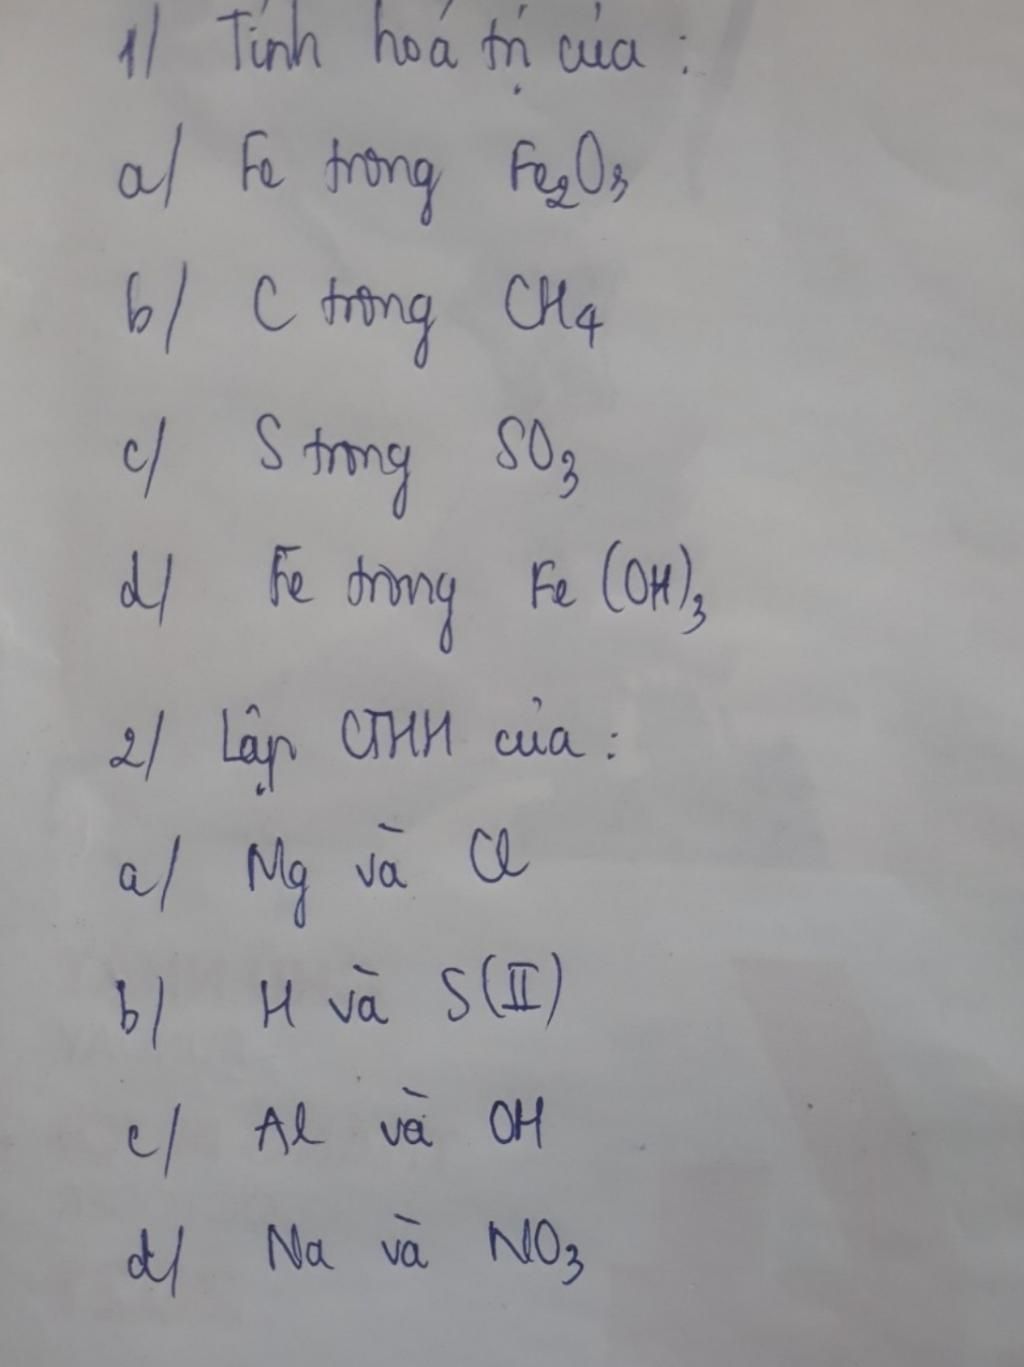 1/ Tính hoá trị của :
a/ Fe trong Fe₂O₃
b/ C trong CH₄
c/ S trong SO₃
d/ Fe trong Fe (OH)₃
2/ Lập CTHH của :
a/ Mg và Cl
b/ H và S (II)
c/ Al và OH
d/ Na và NO₃